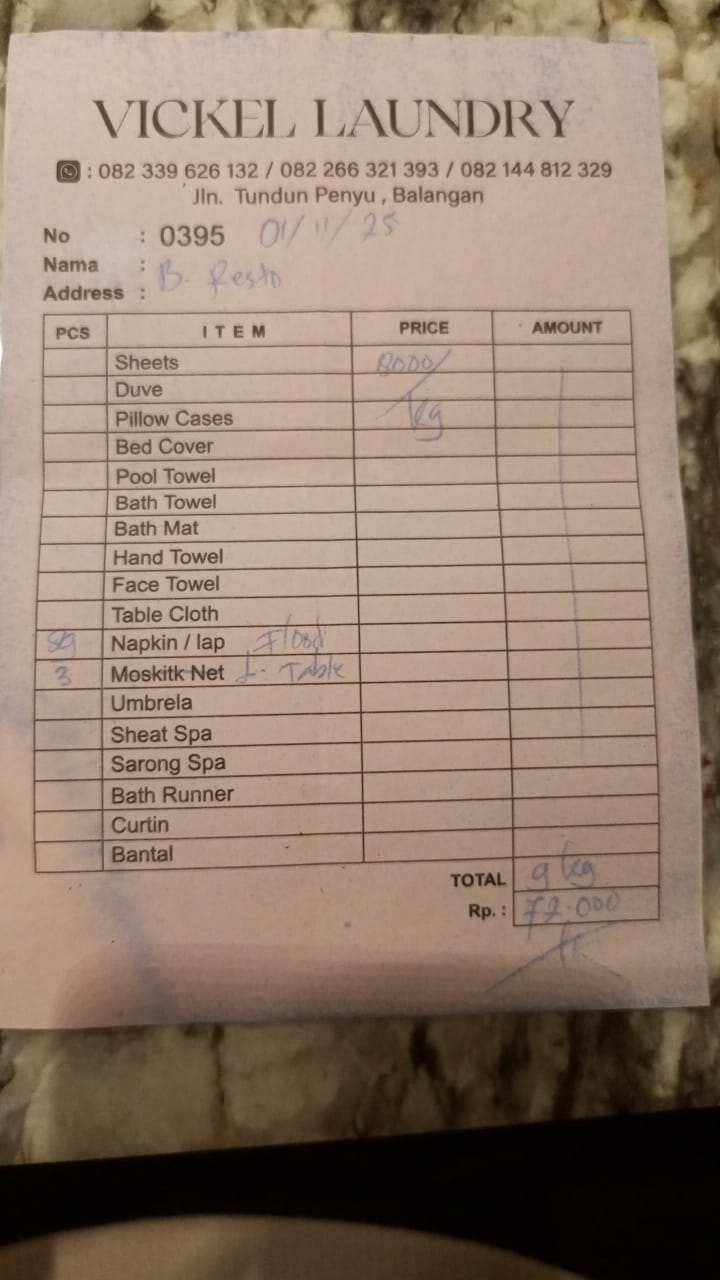 VICKEL LAUNDRY
: 082 339 626 132 / 082 266 321 393 / 082 144 812 329
Jln. Tundun Penyu , Balangan
No : 0395 01/11/25
Nama :
B. Resto
Address :
PCS ITEM PRICE AMOUNT
Sheets 8000/
Duve
Pillow Cases kg
Bed Cover
Pool Towel
Bath Towel
Bath Mat
Hand Towel
Face Towel
Table Cloth
Napkin / lap
3 Moskitk Net L. Table
Umbrela
Sheat Spa
Sarong Spa
Bath Runner
Curtin
Bantal
TOTAL 9 kg
Rp. : 72.000